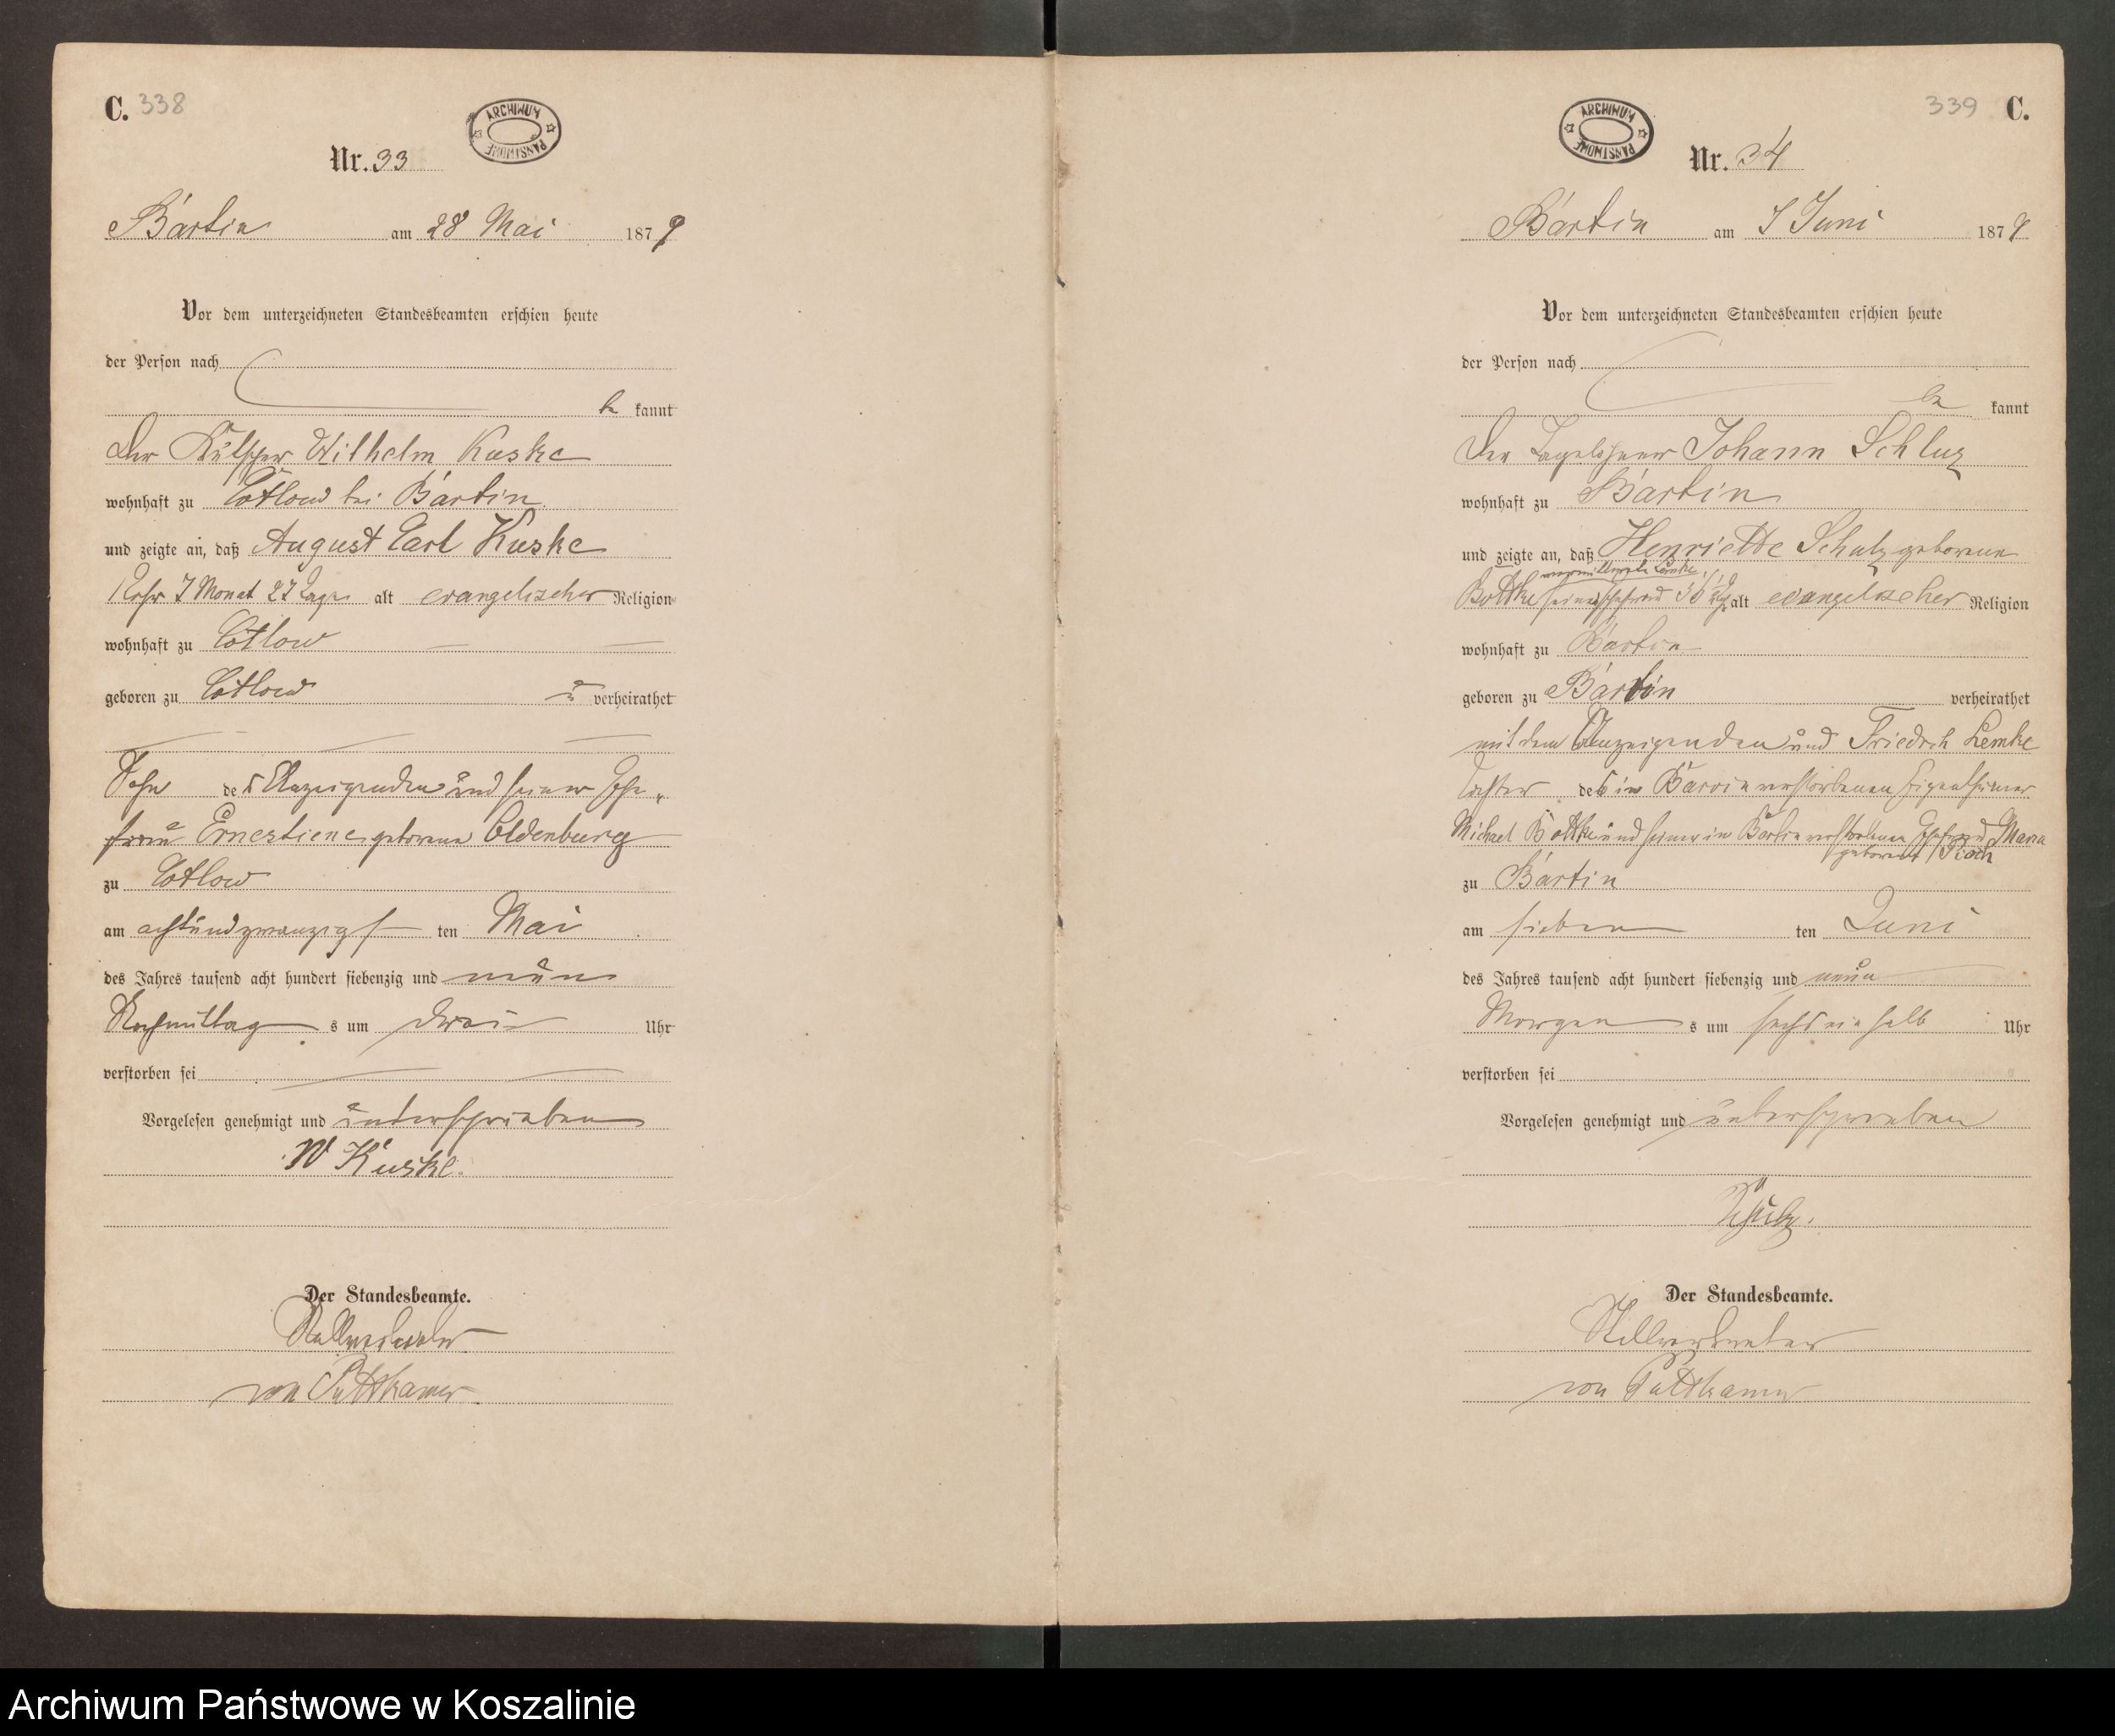 C. 338
ARCHIWUM PAŃSTWOWE
Nr. 33
Bartin am 28 Mai 1879
Vor dem unterzeichneten Standesbeamten erschien heute
der Person nach
be kannt
Der Kutscher Wilhelm Kuske
wohnhaft zu Cotlow bei Bartin
und zeigte an, daß August Carl Kuske
1 Jahr 7 Monat 27 Tage alt evangelischer Religion
wohnhaft zu Cotlow
geboren zu Cotlow un verheirathet
Sohn des Anzeigenden und seiner Ehe„
frau Ernestiene geborene Oldenburg
zu Cotlow
am achtundzwanzigsten ten Mai
des Jahres tausend acht hundert siebenzig und neun
Nachmittag s um drei Uhr
verstorben sei
Vorgelesen genehmigt und unterschrieben
W Kuske.
Der Standesbeamte.
Stellvertreter
von Puttkamer
339 C.
ARCHIWUM PAŃSTWOWE
Nr. 34
Bartin am 7 Juni 1879
Vor dem unterzeichneten Standesbeamten erschien heute
der Person nach
be kannt
Der Tagelöhner Johann Schluz
wohnhaft zu Bartin
und zeigte an, daß Henriette Schulz geborene
Lemke
Bottke seine Ehefrau alt evangelischer Religion
wohnhaft zu Bartin
geboren zu Bartin verheirathet
mit dem Anzeigenden und Friedrich Lemke
Tochter des in Bartin verstorbenen Eigenthümer
Michael Bottke und seiner in Bartin verstorbenen Ehefrau Maria
geborene
zu Bartin
am sieben ten Juni
des Jahres tausend acht hundert siebenzig und neun
Morgen s um sechs ein halb Uhr
verstorben sei
Vorgelesen genehmigt und unterschrieben
Schulz.
Der Standesbeamte.
Stellvertreter
von Puttkamer
Archiwum Państwowe w Koszalinie